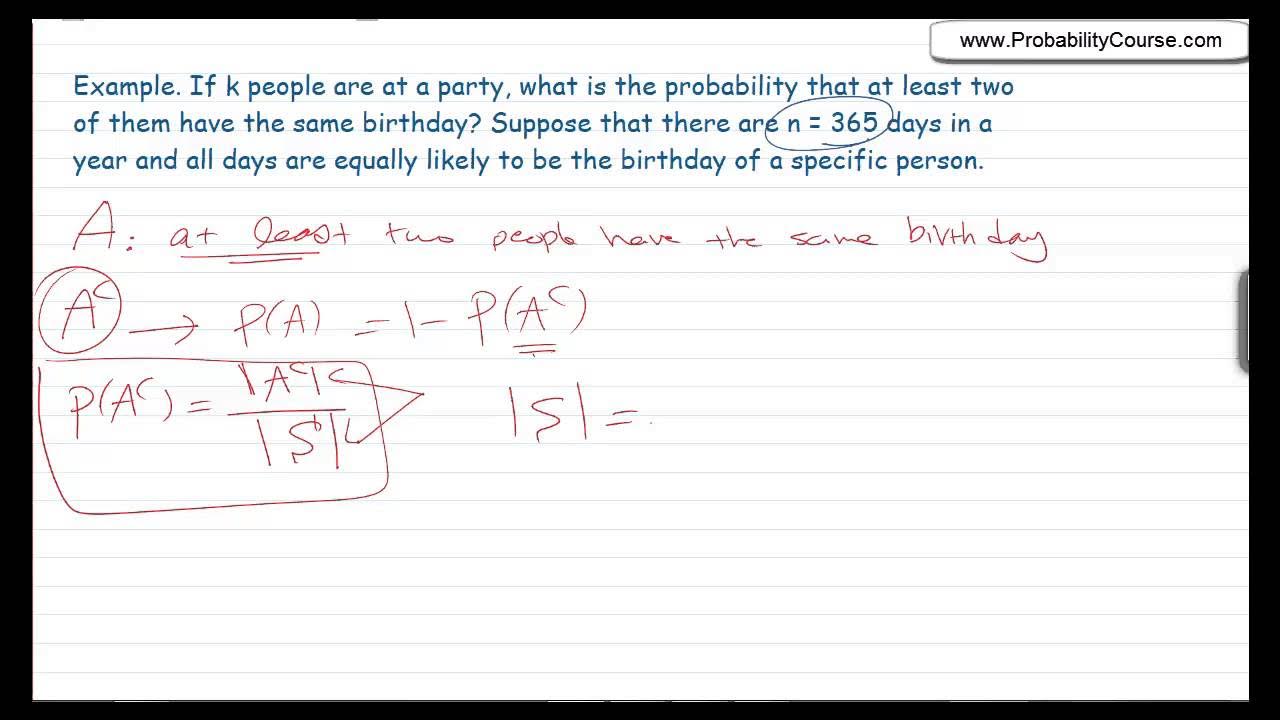 www.ProbabilityCourse.com
Example. If k people are at a party, what is the probability that at least two
of them have the same birthday? Suppose that there are n = 365 days in a
year and all days are equally likely to be the birthday of a specific person.
A: at least two people have the same birthday
Aᶜ → P(A) = 1 - P(Aᶜ)
P(Aᶜ) = |Aᶜ| / |S|
|S| =